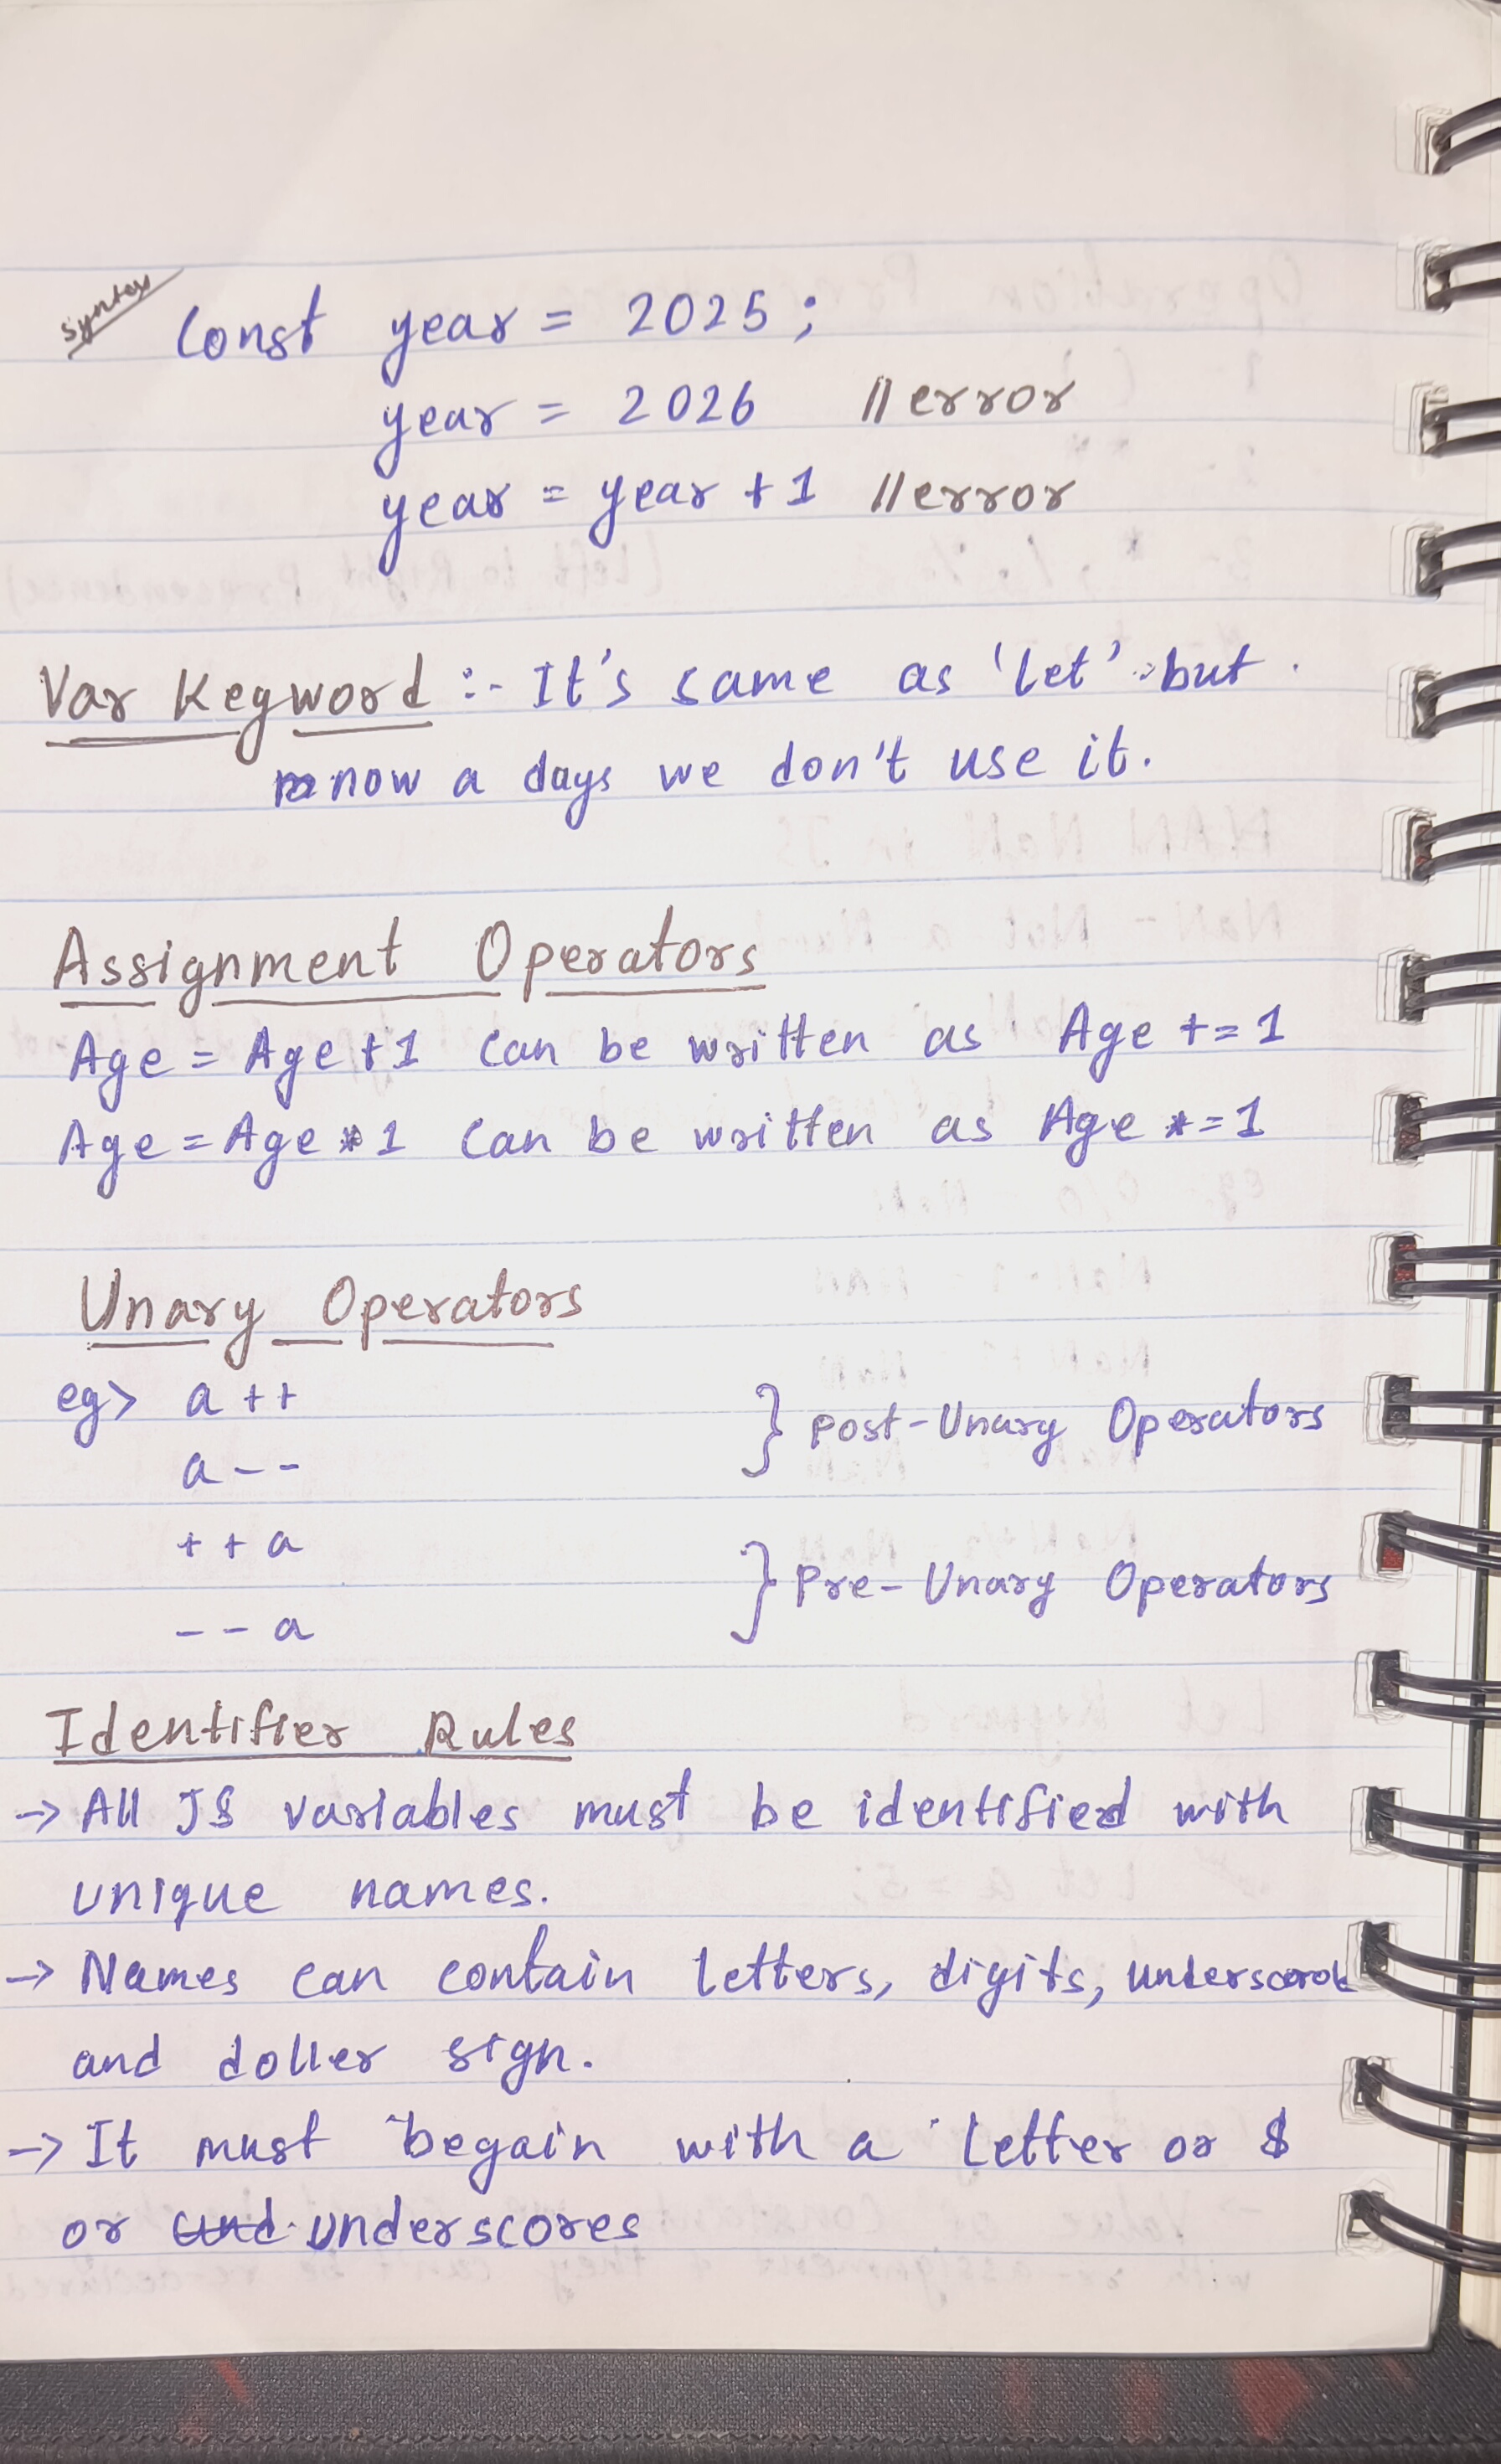 Syntax
Const year = 2025;
year = 2026 //error
year = year + 1 //error
Var Keyword :- It's same as 'let' but
now a days we don't use it.
Assignment Operators
Age = Age + 1 Can be written as Age += 1
Age = Age * 1 Can be written as Age *= 1
Unary Operators
eg> a ++
a --
} Post-Unary Operators
++ a
-- a
} Pre-Unary Operators
Identifier Rules
→ All JS variables must be identified with
unique names.
→ Names can contain letters, digits,
and doller sign.
→ It must begain with a letter or $
or underscores